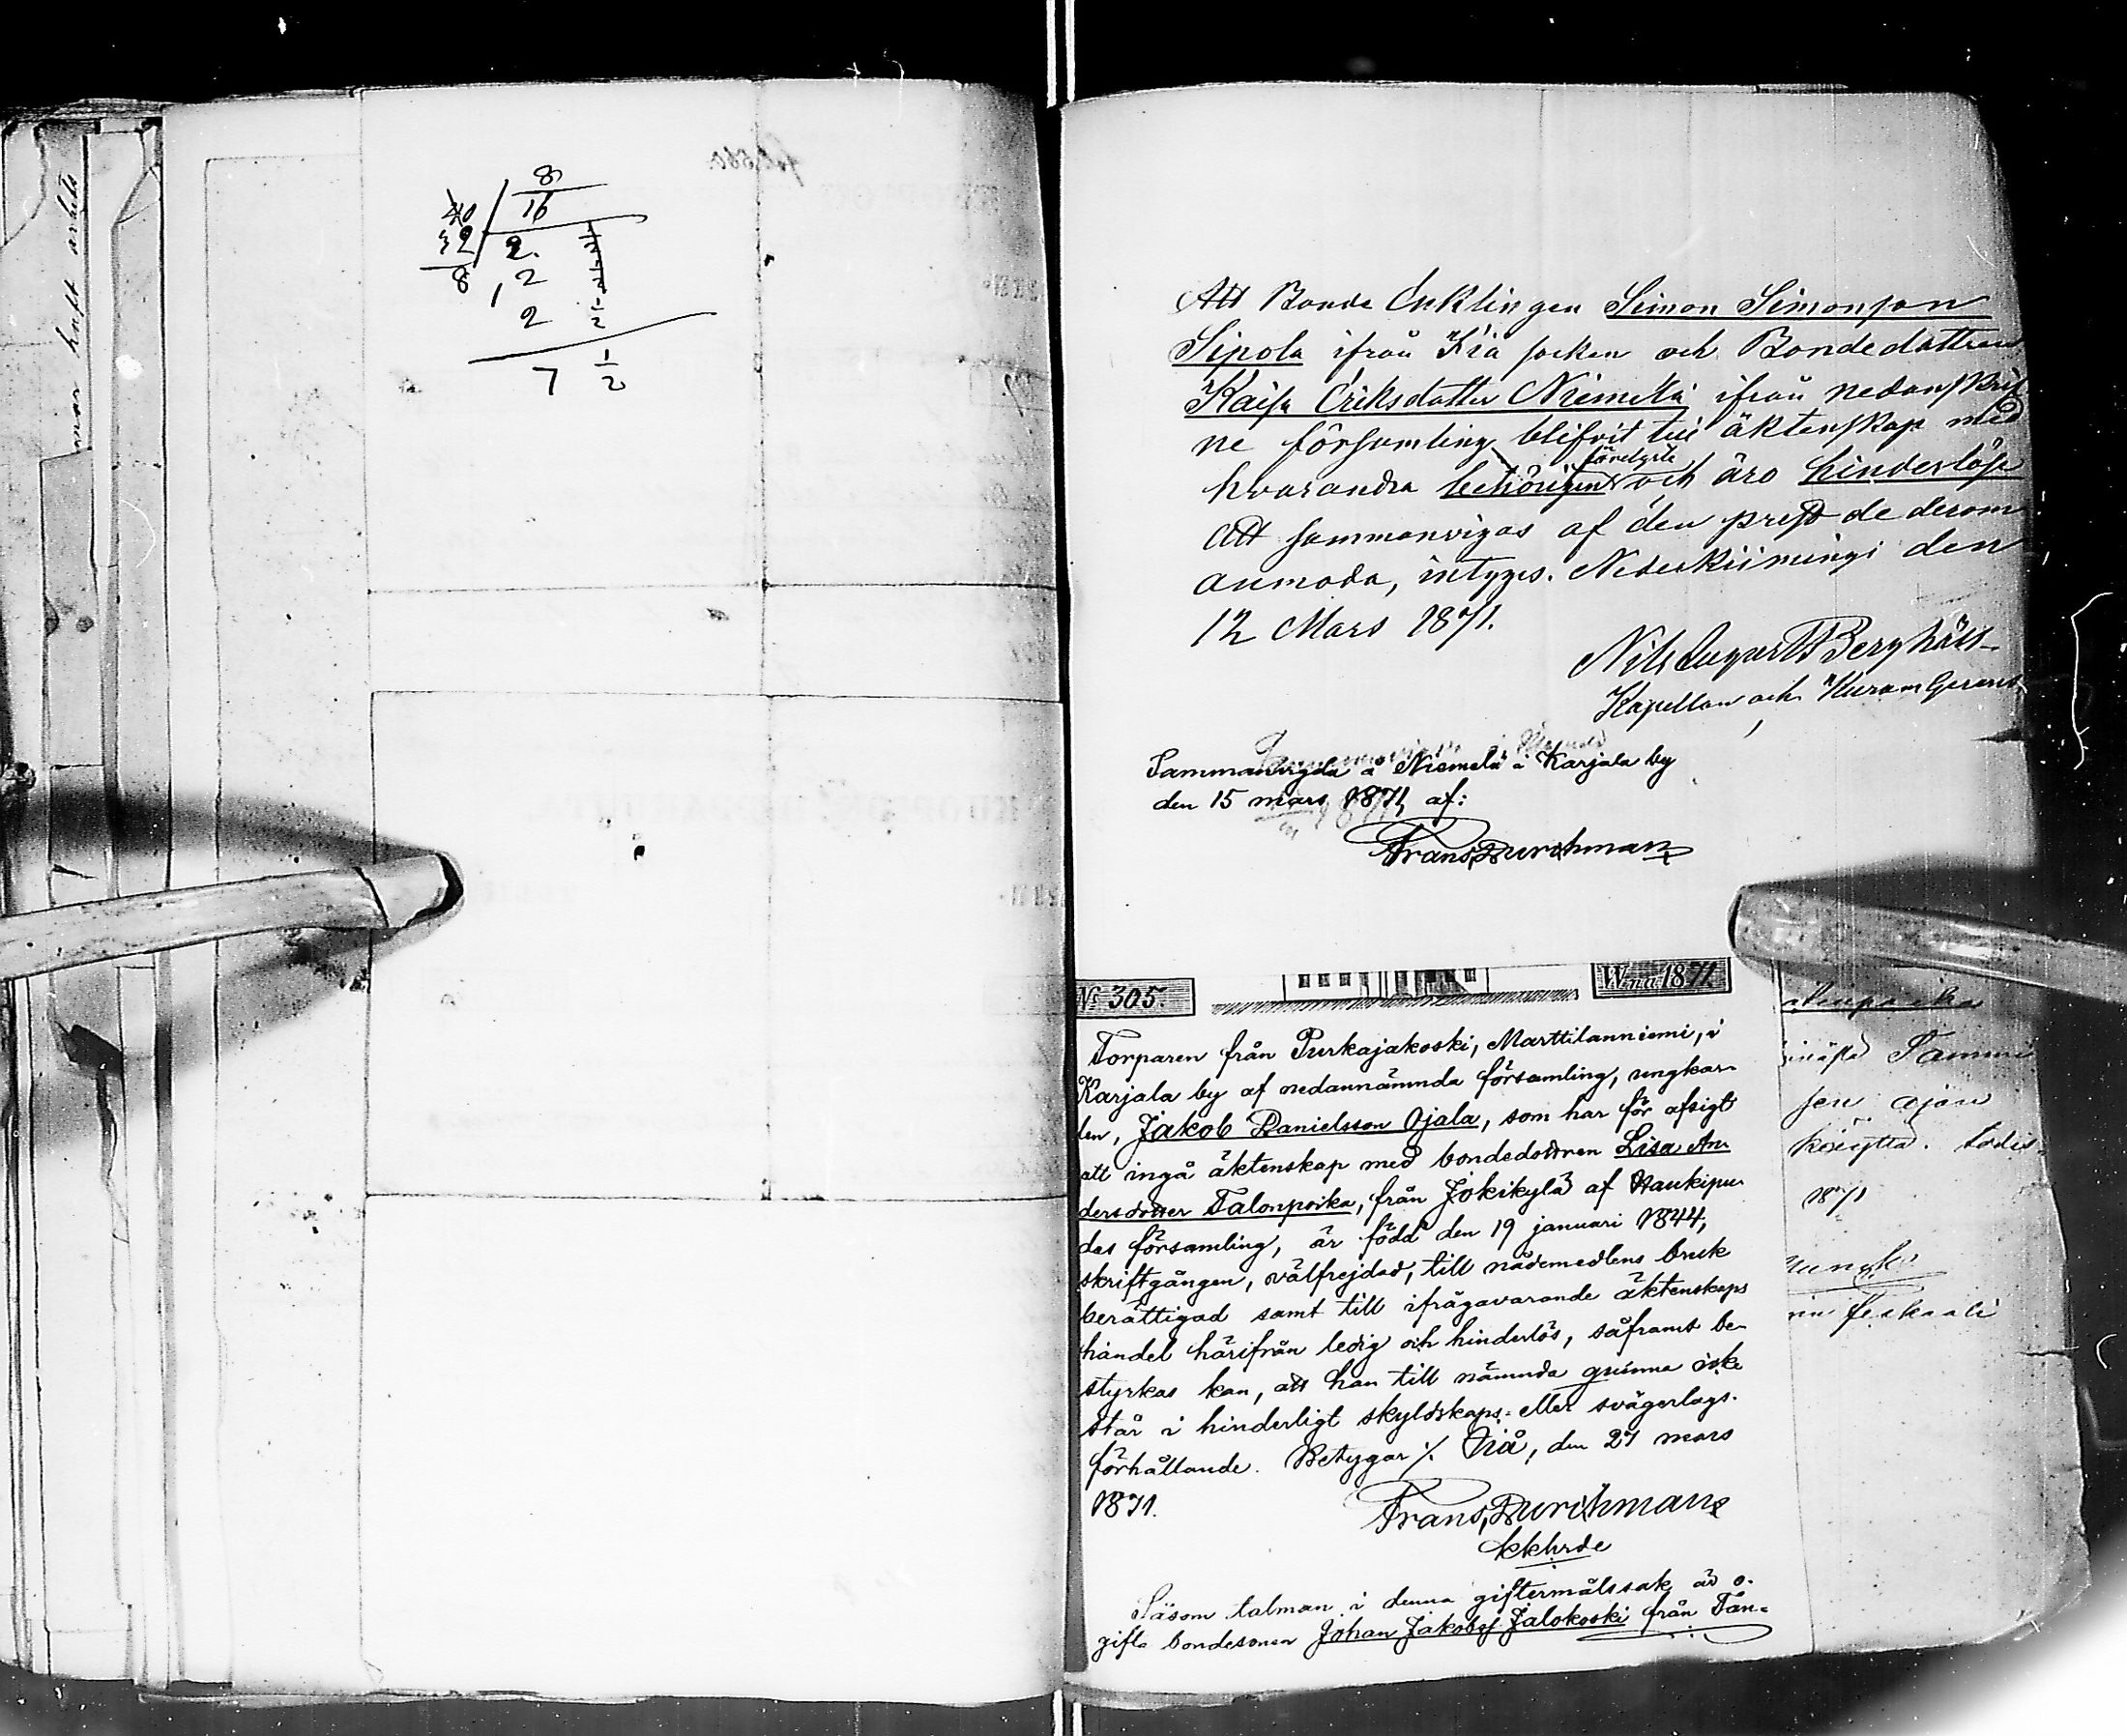 mar haft arbets
8
40 16
32 2. 1/2
8 12 1/2
2 1/2
7 1/2
Att Bonde Enklingen Simon Simonson
Sipola ifrån Kiä socken och Bondedottren
Kaisa Eriksdotter Niemelä ifrån nedanskrif
ne församling blifvit till äktenskap med
förelyste
hvarandra behörigen och äro hinderlöse
att sammanvigas af den prest de derom
anmoda, intygas. Nederkiimingi den
12 Mars 1871.
Nils August Berghäll
Kapellan och
Sammanvigda å Niemelä i Karjala by
den 15 mars 1871, af:
Frans Durchman
№ 305. W:na 1871.
Torparen från Purkajakoski, Marttilanniemi, i
Karjala by af nedannämnda församling, ungkar-
len, Jakob Danielsson Ojala, som har för afsigt
att ingå äktenskap med bondedottren Lisa An-
dersdotter Talonpoika, från Jokikylä af Haukipu-
das församling, är född den 19 januari 1844,
skriftgången, välfrejdad, till nådemedlens bruk
berättigad samt till ifrågavarande äktenskaps
handel härifrån ledig och hinderlös, såframt be-
styrkas kan, att han till nämnda qvinna icke
står i hinderligt skyldskaps- eller svågerlags-
förhållande. Betygar ⁒ Kiä, den 27 mars
1871.
Frans Durchman
kkhrde
Såsom talman i denna giftermålssak är o-
gifte bondesonen Johan Jakobss. Jalokoski från Tan-
Tammi
sen ajan
todis-
1871